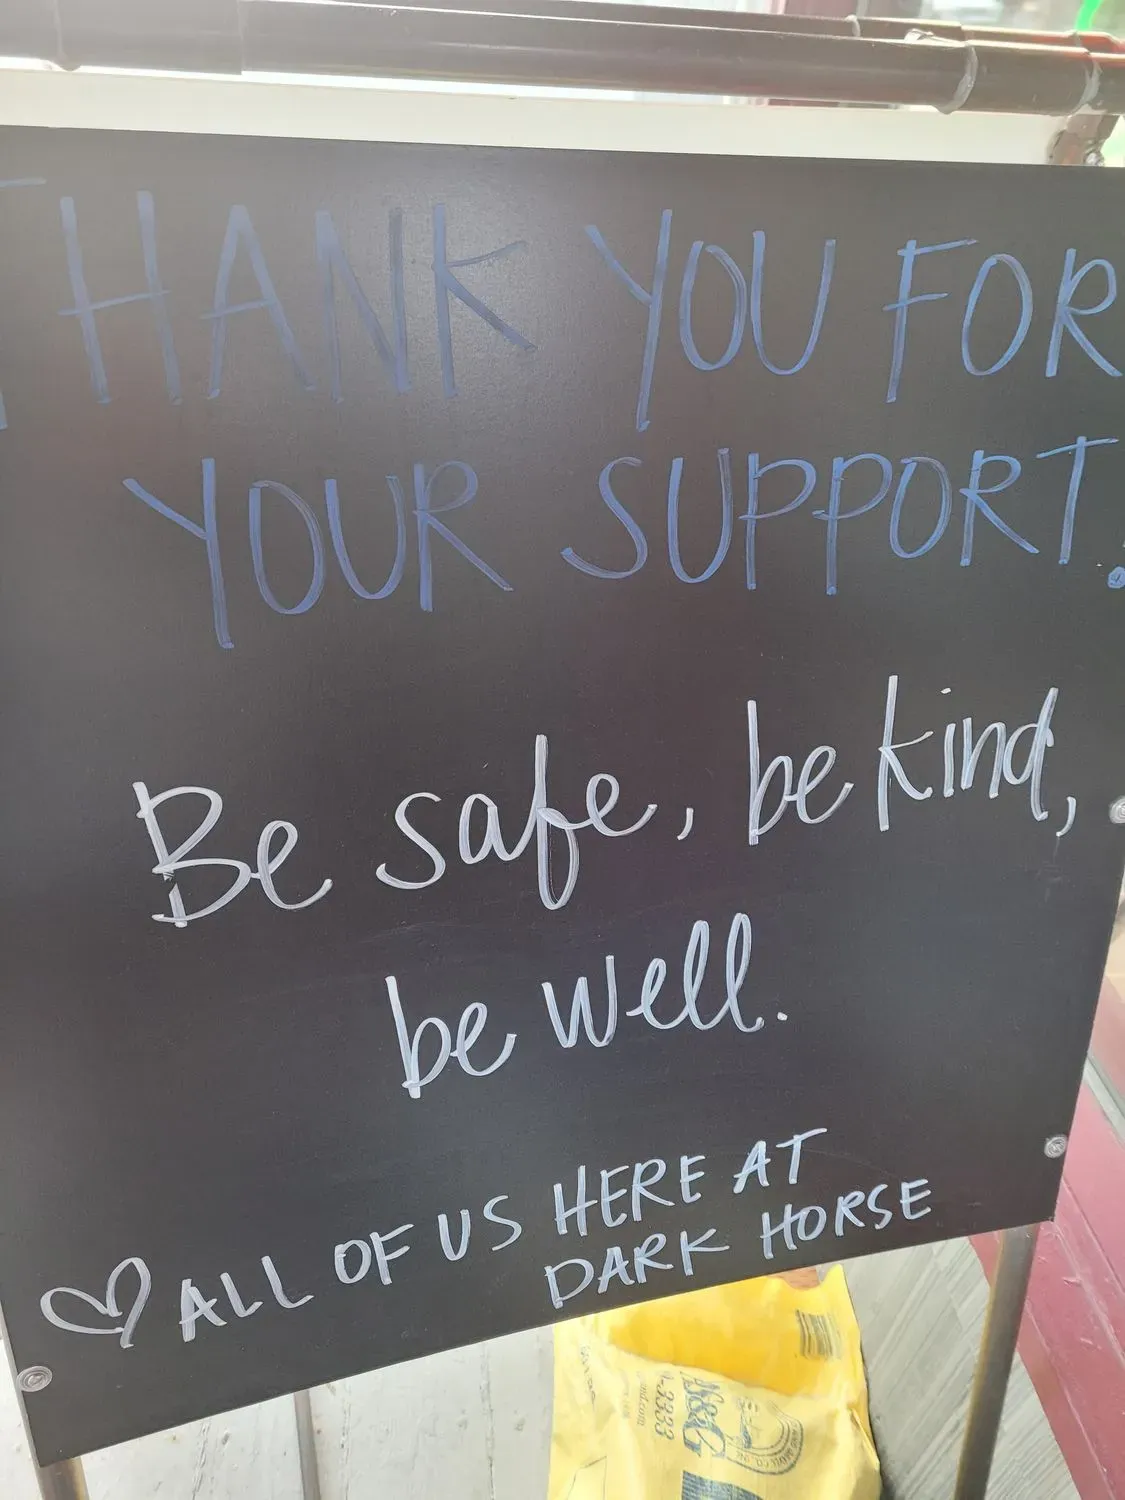 THANK YOU FOR
YOUR SUPPORT!
Be safe, be kind,
be well.
ALL OF US HERE AT
DARK HORSE